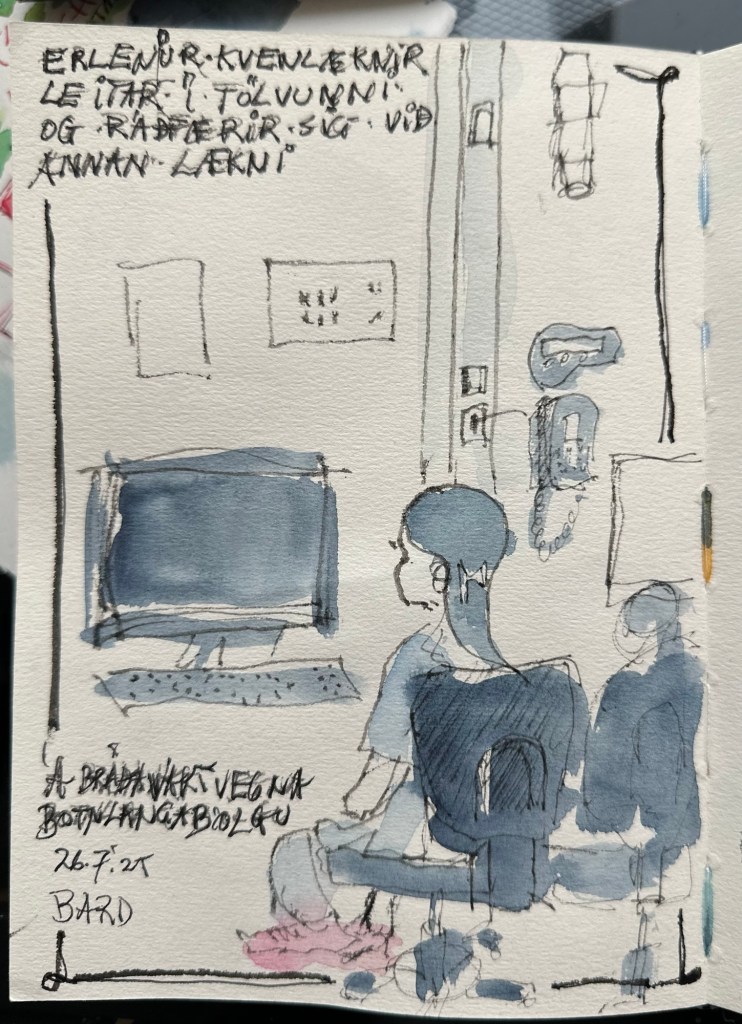 ERLENDUR · KVENLÆKNIR
LEITAR · Í · TÖLVUNNI ·
OG · RÁÐFÆRIR · SIG · VIÐ
ANNAN · LÆKNI
Á BRÁÐAVAKT VEGNA
BOTNLANGABÓLGU
26.7.25
BARD